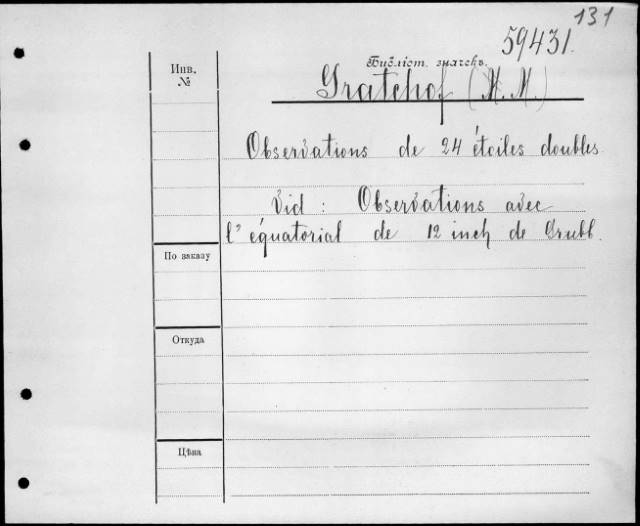 131
59431.
Инв.
№
Библіот. значекъ.
Gratchof (M. M.)
Observations de 24 étoiles doubles
Vid : Observations avec
l'équatorial de 12 inch de Grubb.
По заказу
Откуда
Цѣна